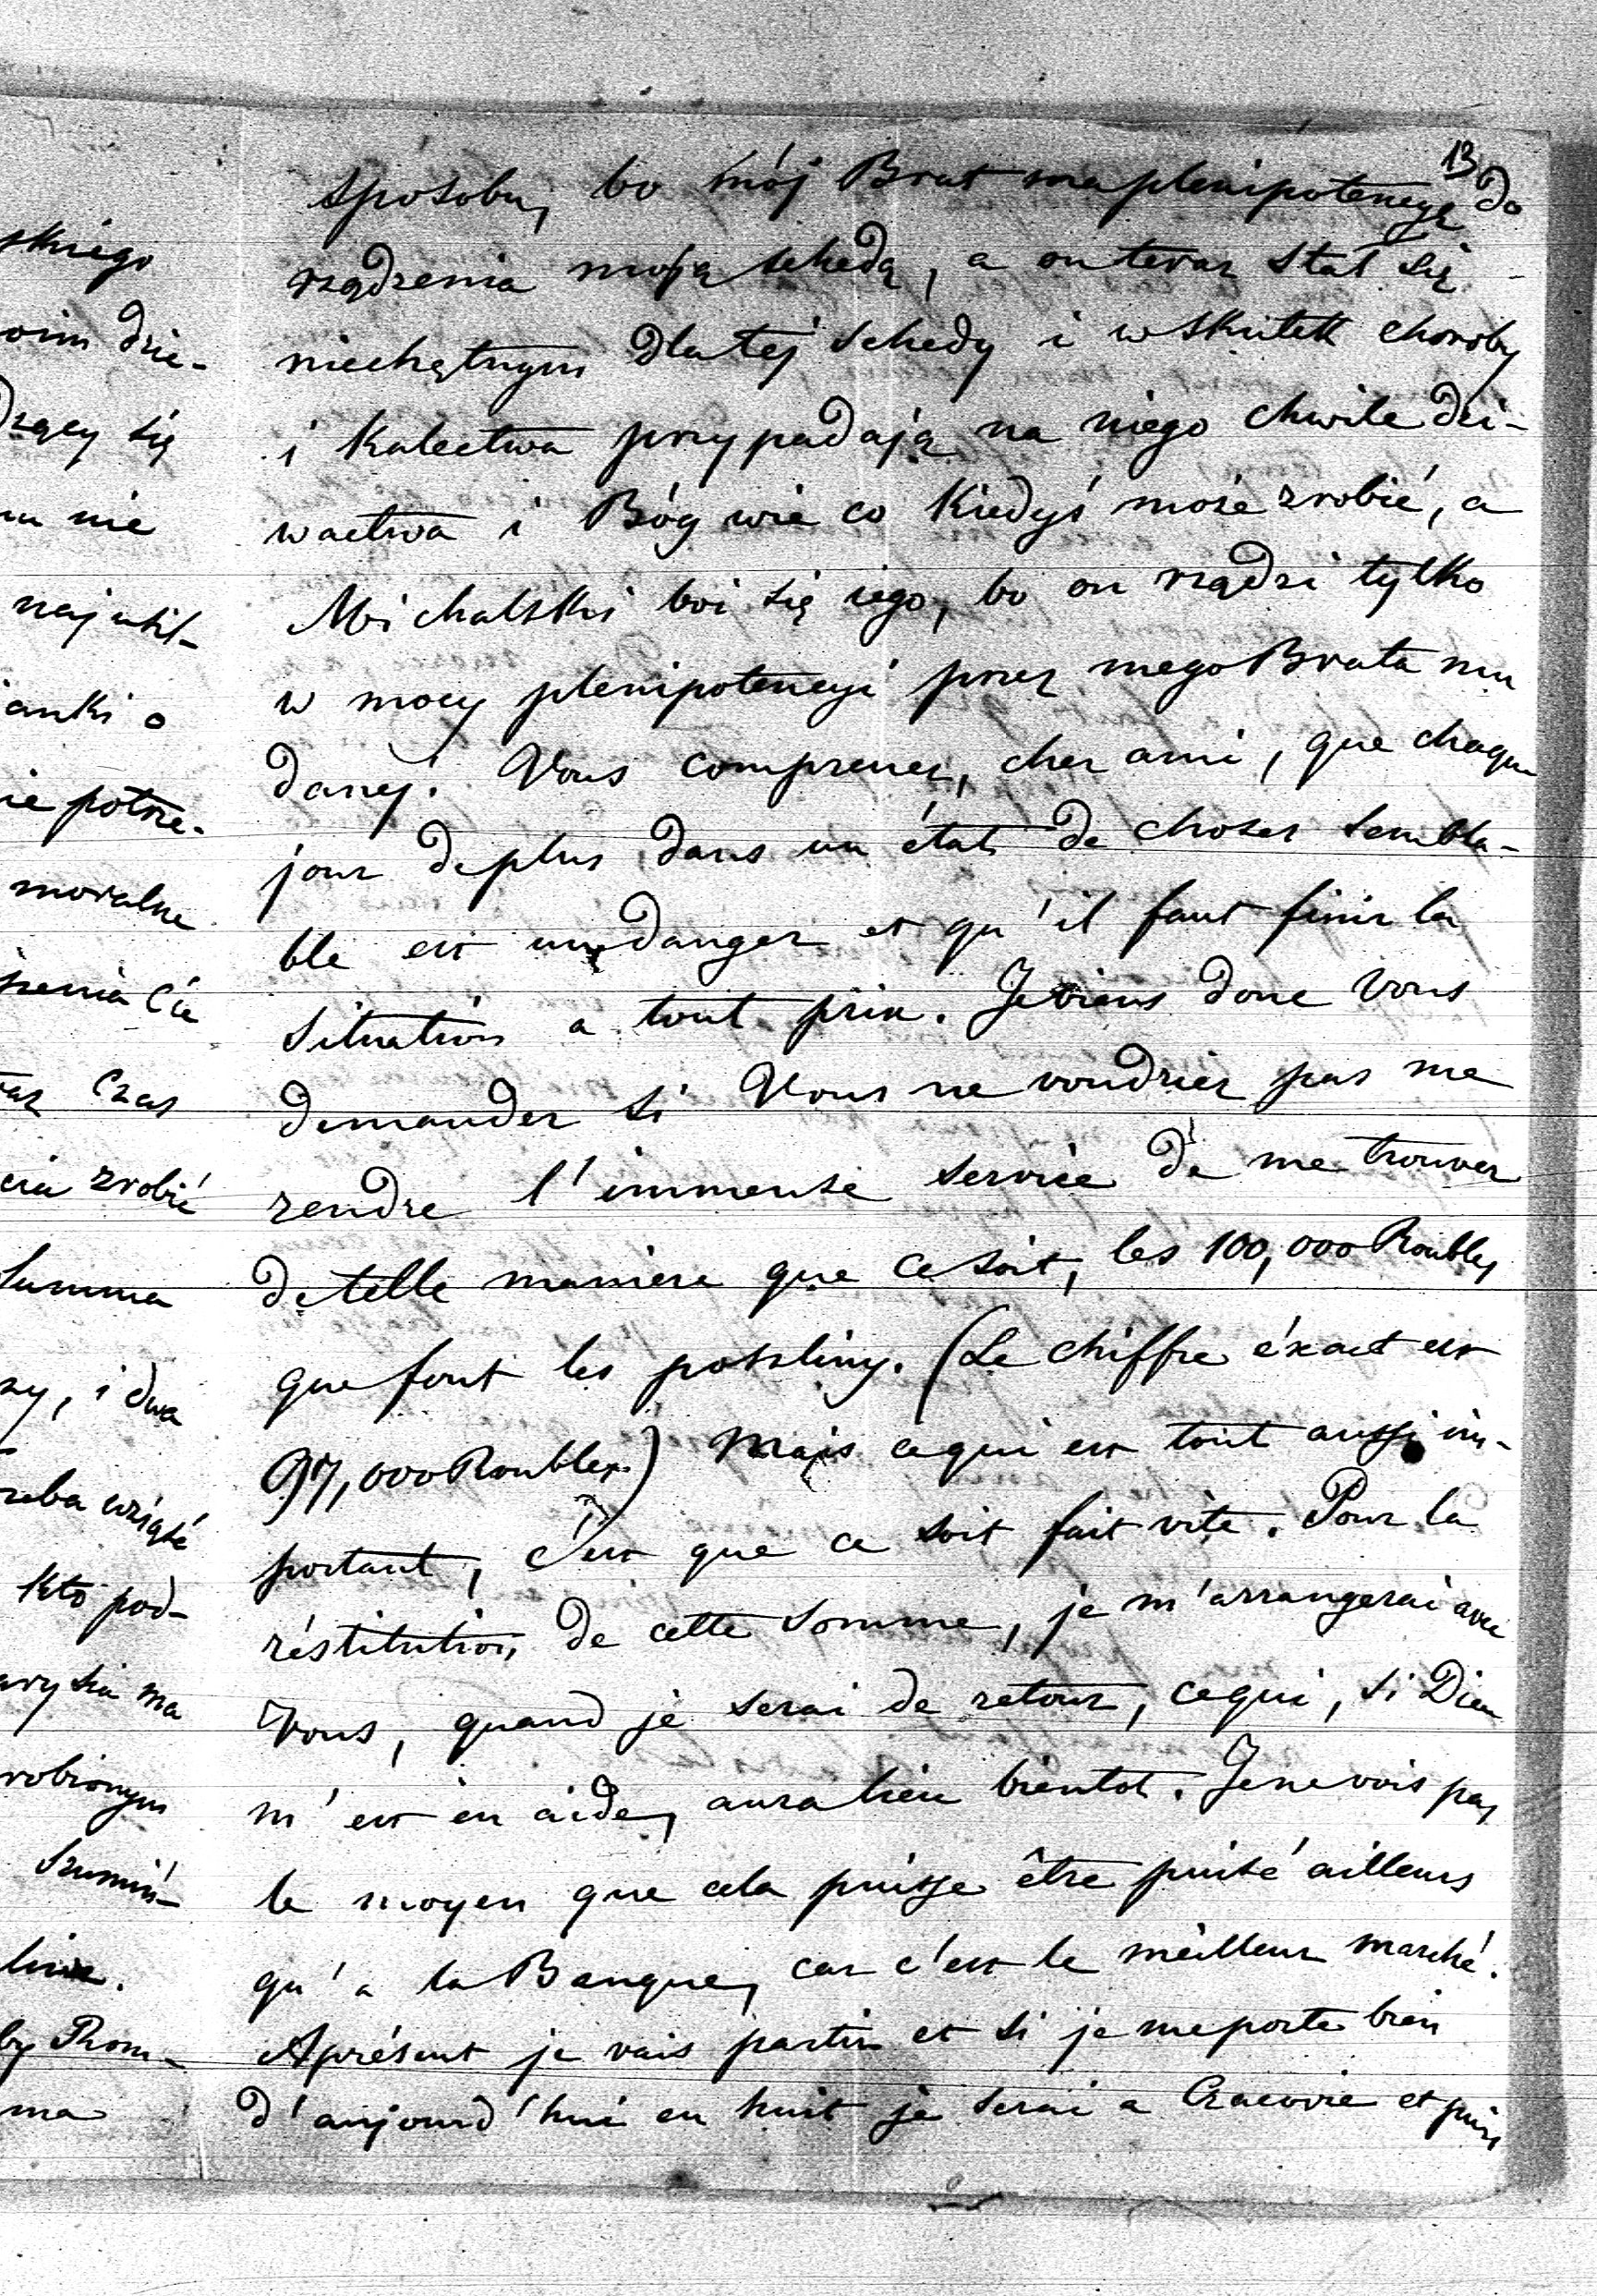 13
sposobu, bo mój Brat ma plenipotencyę do
rządzenia moją schedą, a on teraz stał się
niechętnym dla téj schedy i wskutek choroby
i kalectwa przypadają na niego chwile dzi-
wactwa i Bóg wie co kiedyś może zrobić, a
Michalski boi się iego, bo on rządzi tylko
w mocy plenipotencyi przez mego Brata mu
danéj. Vous comprenez, cher ami, que chaque
jour de plus dans un état de choses sembla-
ble est un danger et qu'il faut finir la
situation a tout prix. Je viens donc Vous
demander si Vous ne voudriez pas me
rendre l'immense service de me trouver
de telle manière que ce soit, les 100,000 Roubles
que font les poszliny. (Le chiffre éxact est
97,000 Roubles) Mais ce qui est tout aussi im-
portant, c'est que ce soit fait vite. Pour la
réstitution de cette somme, je m'arrangerai avec
Vous, quand je serai de retour, ce qui, si Dieu
m'est en aide, aura lieu bientot. Je ne vois pas
le moyen que cela puisse être puisé ailleurs
qu'a la Banque, car c'est le meilleur marché.
Aprésent je vais partir et si je me porte bien
d'aujourd'hui en huit je serai a Cracovie et puis
skiego
oim dzie-
dzący się
nie
najusil-
ianki o
ie potrze-
moralne
szenia Cię
Czas
zrobić
Summa
i dwa
wziąść
kto pod-
ma
robionym
Szumiń-
by Prom-
ma